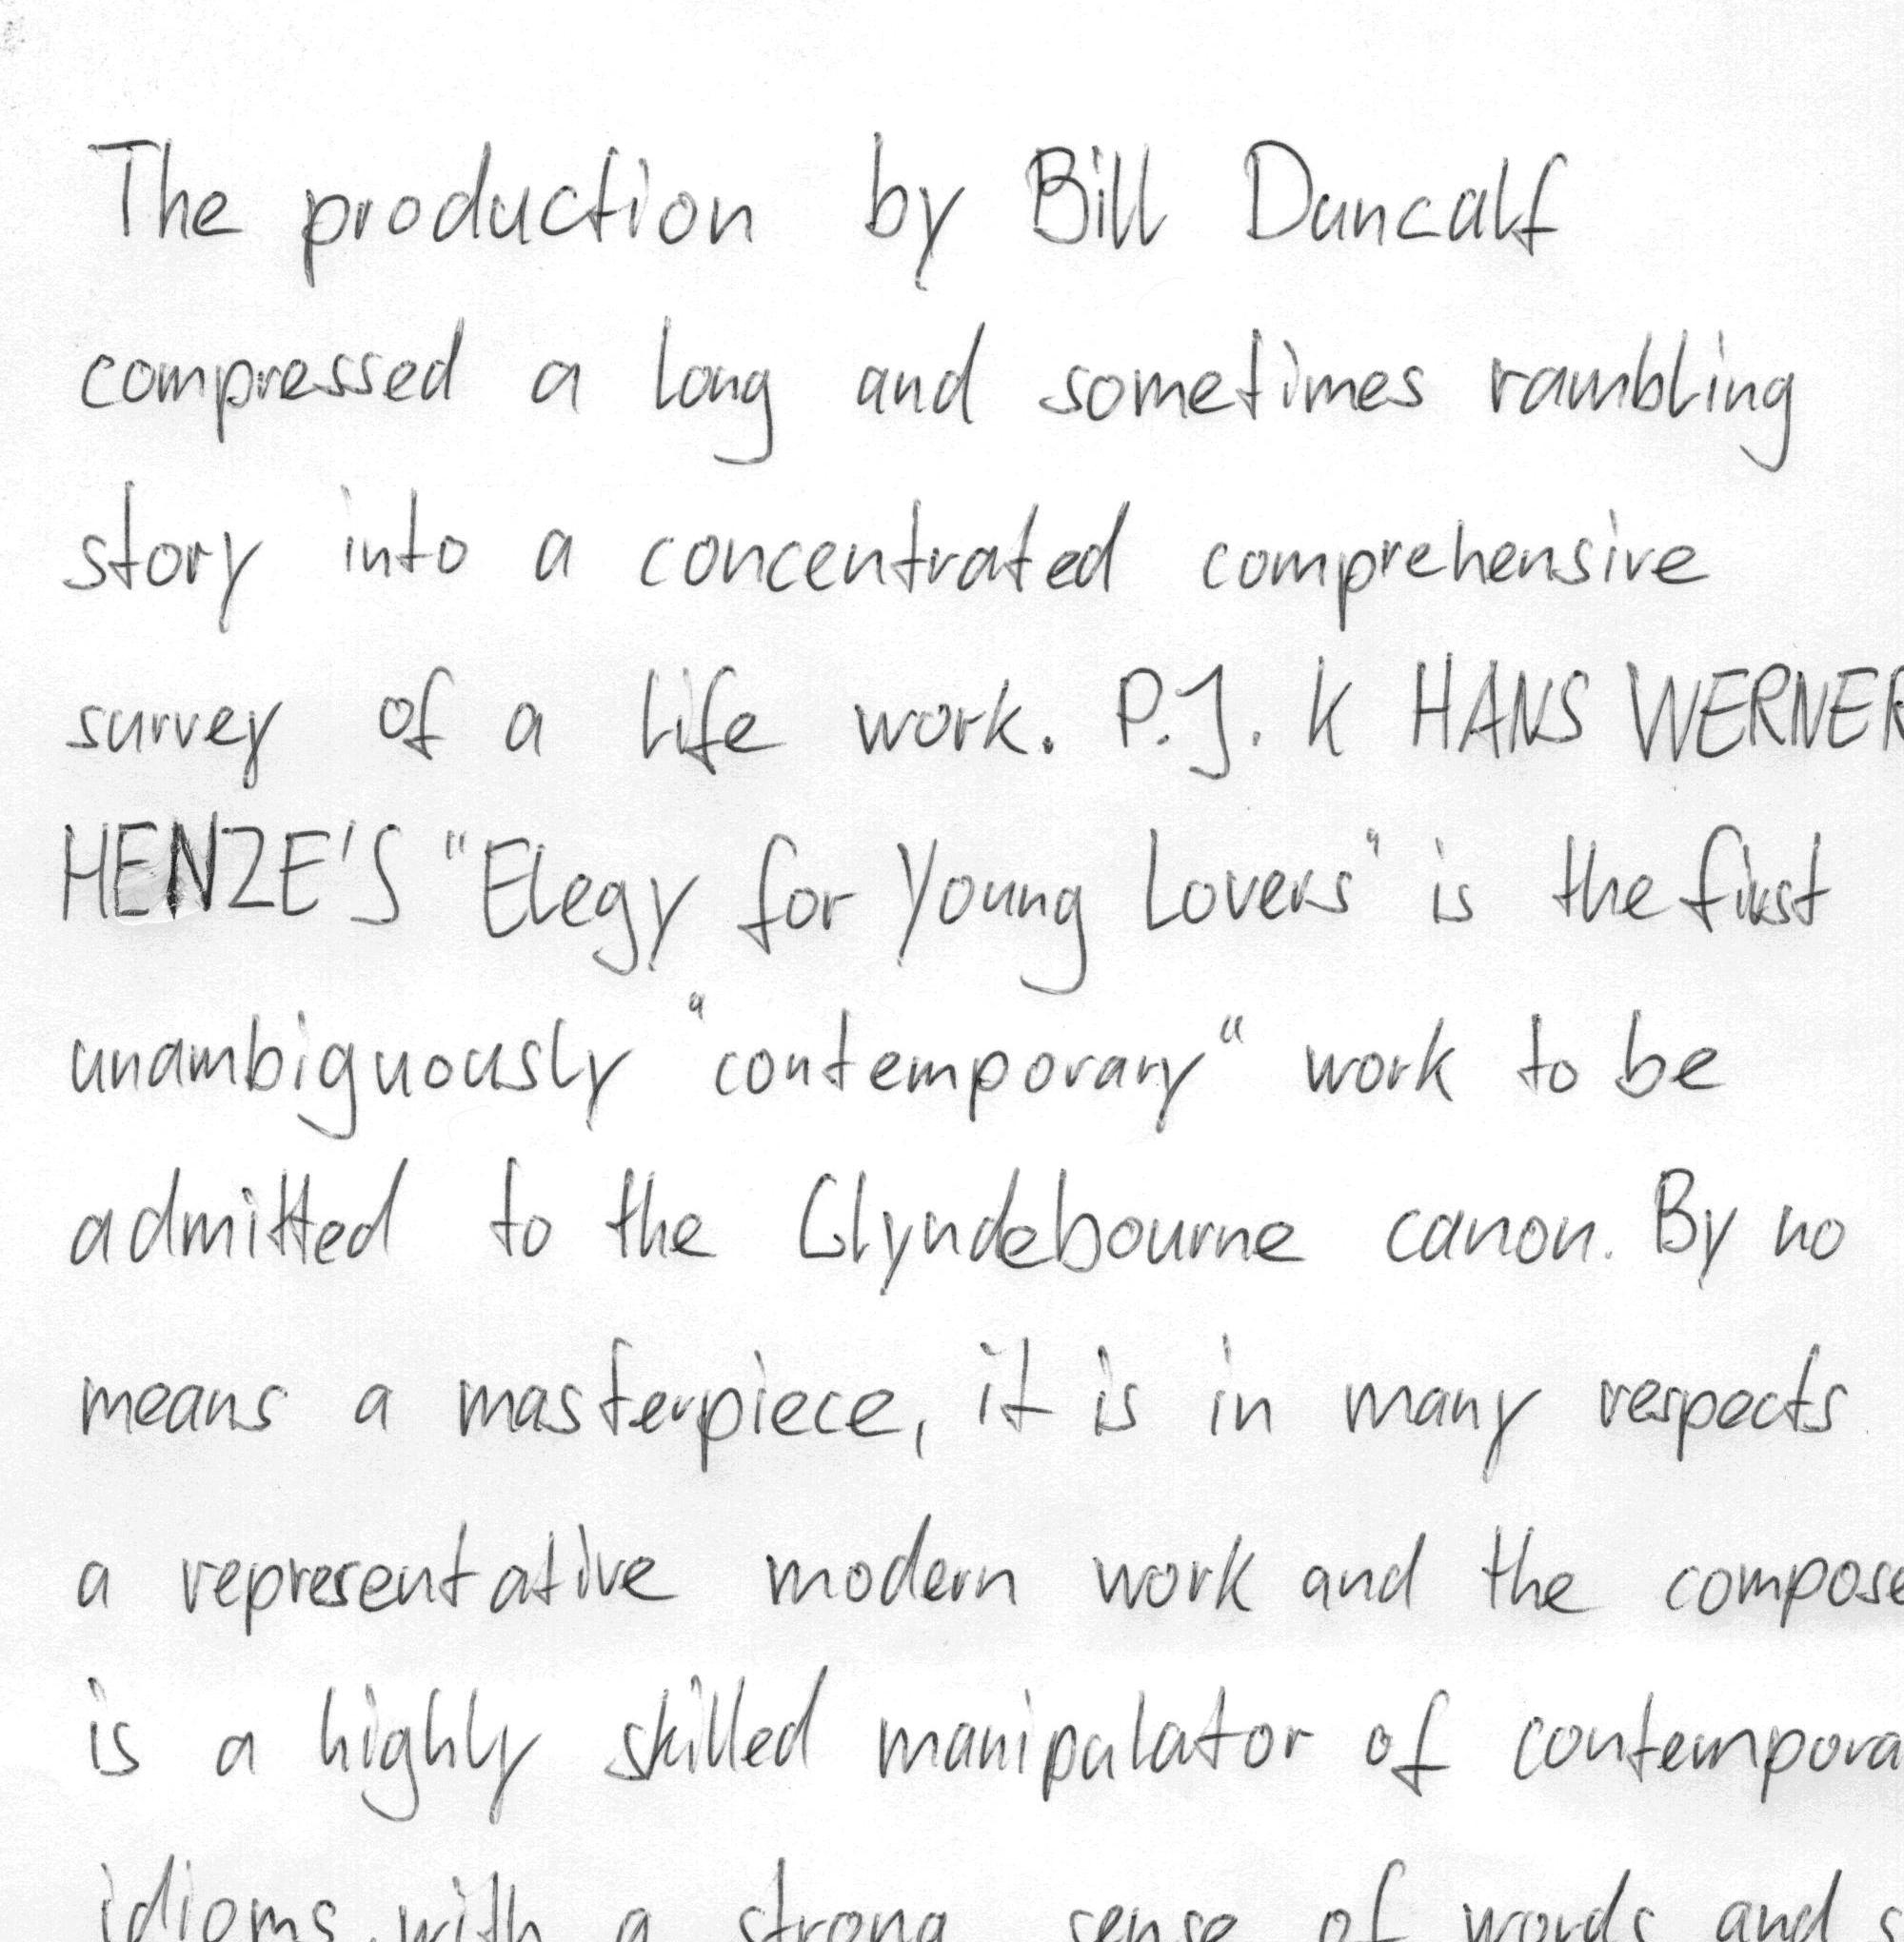 The production by Bill Duncalf
compressed a long and sometimes rambling
story into a concentrated comprehensive
survey of a life work. P.J. K HANS WERNER
HENZE'S "Elegy for Young Lovers" is the first
unambiguously "contemporary" work to be
admitted to the Glyndebourne canon. By no
means a masterpiece, it is in many respects
a representative modern work and the compose
is a highly skilled manipulator of contempora
idioms, with a strong sense of words and